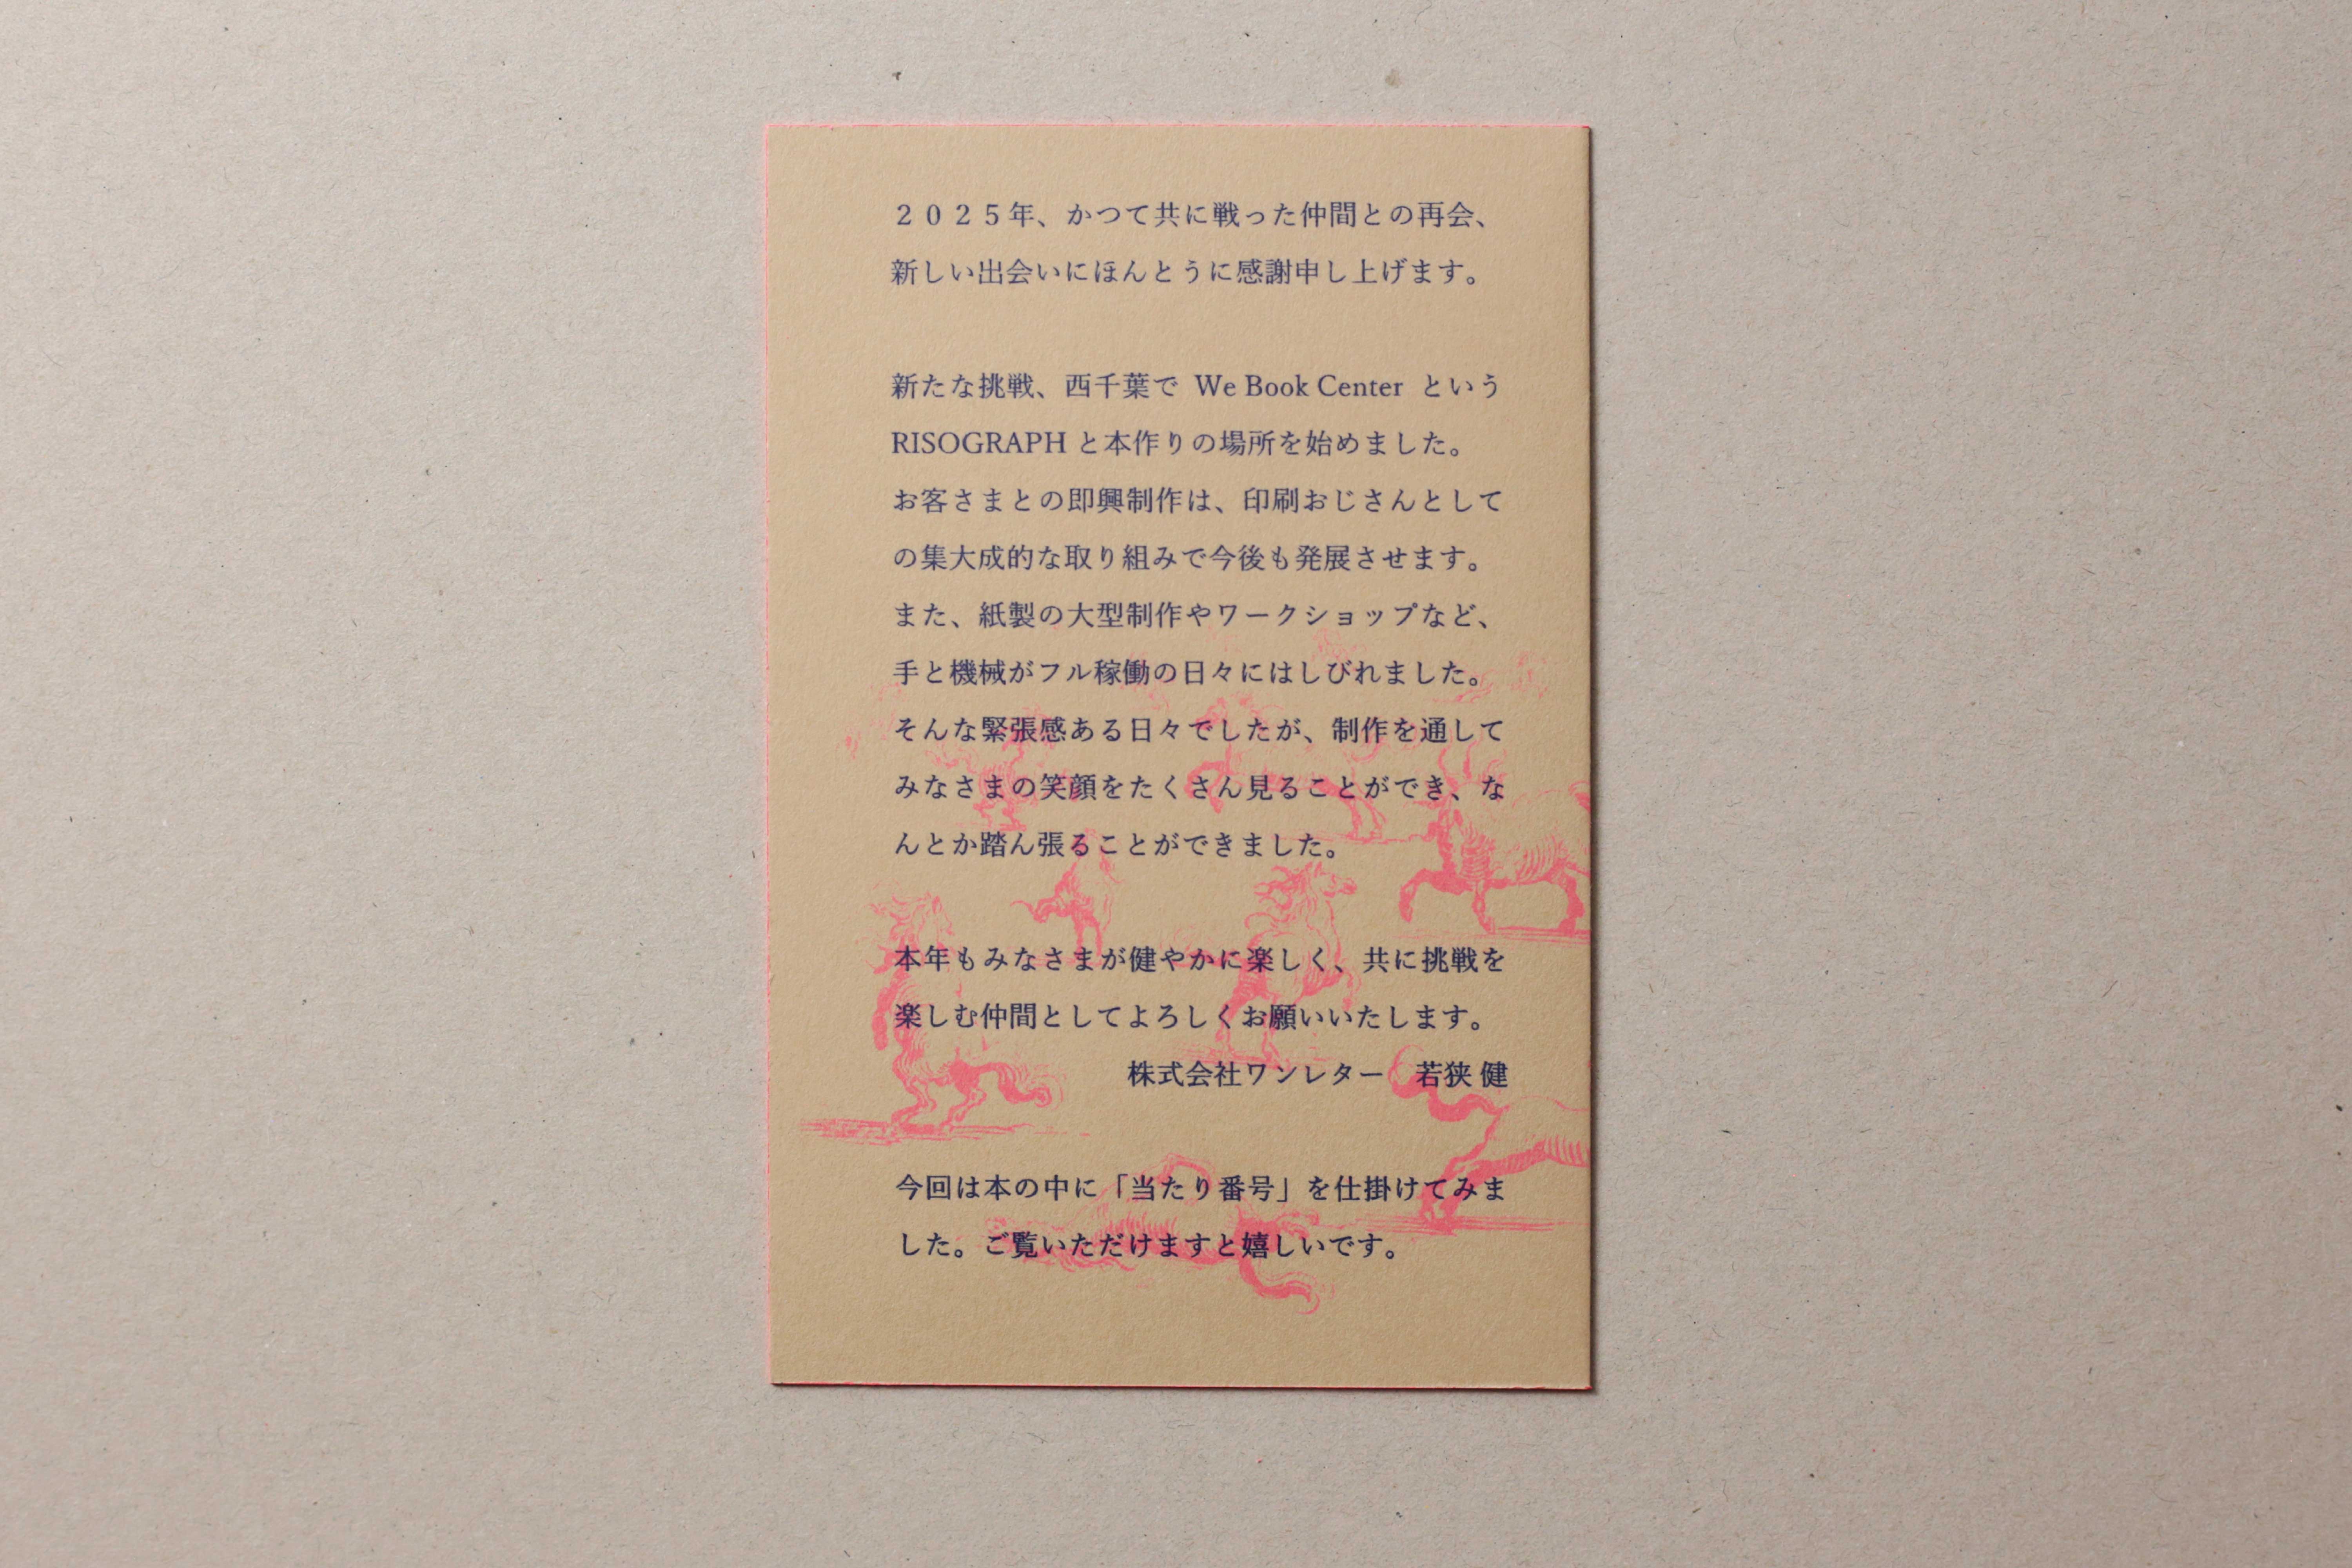 ２０２５年、かつて共に戦った仲間との再会、
新しい出会いにほんとうに感謝申し上げます。
新たな挑戦、西千葉で We Book Center という
RISOGRAPH と本作りの場所を始めました。
お客さまとの即興制作は、印刷おじさんとして
の集大成的な取り組みで今後も発展させます。
また、紙製の大型制作やワークショップなど、
手と機械がフル稼働の日々にはしびれました。
そんな緊張感ある日々でしたが、制作を通して
みなさまの笑顔をたくさん見ることができ、な
んとか踏ん張ることができました。
本年もみなさまが健やかに楽しく、共に挑戦を
楽しむ仲間としてよろしくお願いいたします。
株式会社ワンレター　若狭 健
今回は本の中に「当たり番号」を仕掛けてみま
した。ご覧いただけますと嬉しいです。